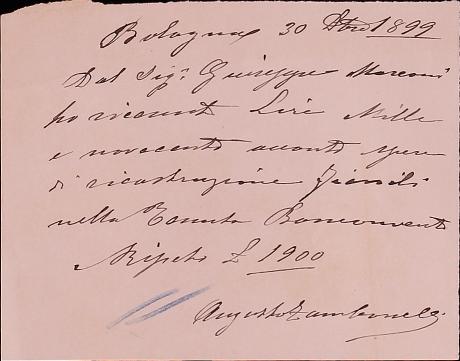 Bologna 30 Xbre 1899
Dal Sig.r Giuseppe Marconi
ho ricevuto Lire Mille
e novecento acconto spese
di ricostruzione fienili
nella Tenuta Bonconvento
Ripeto £ 1900
Augusto